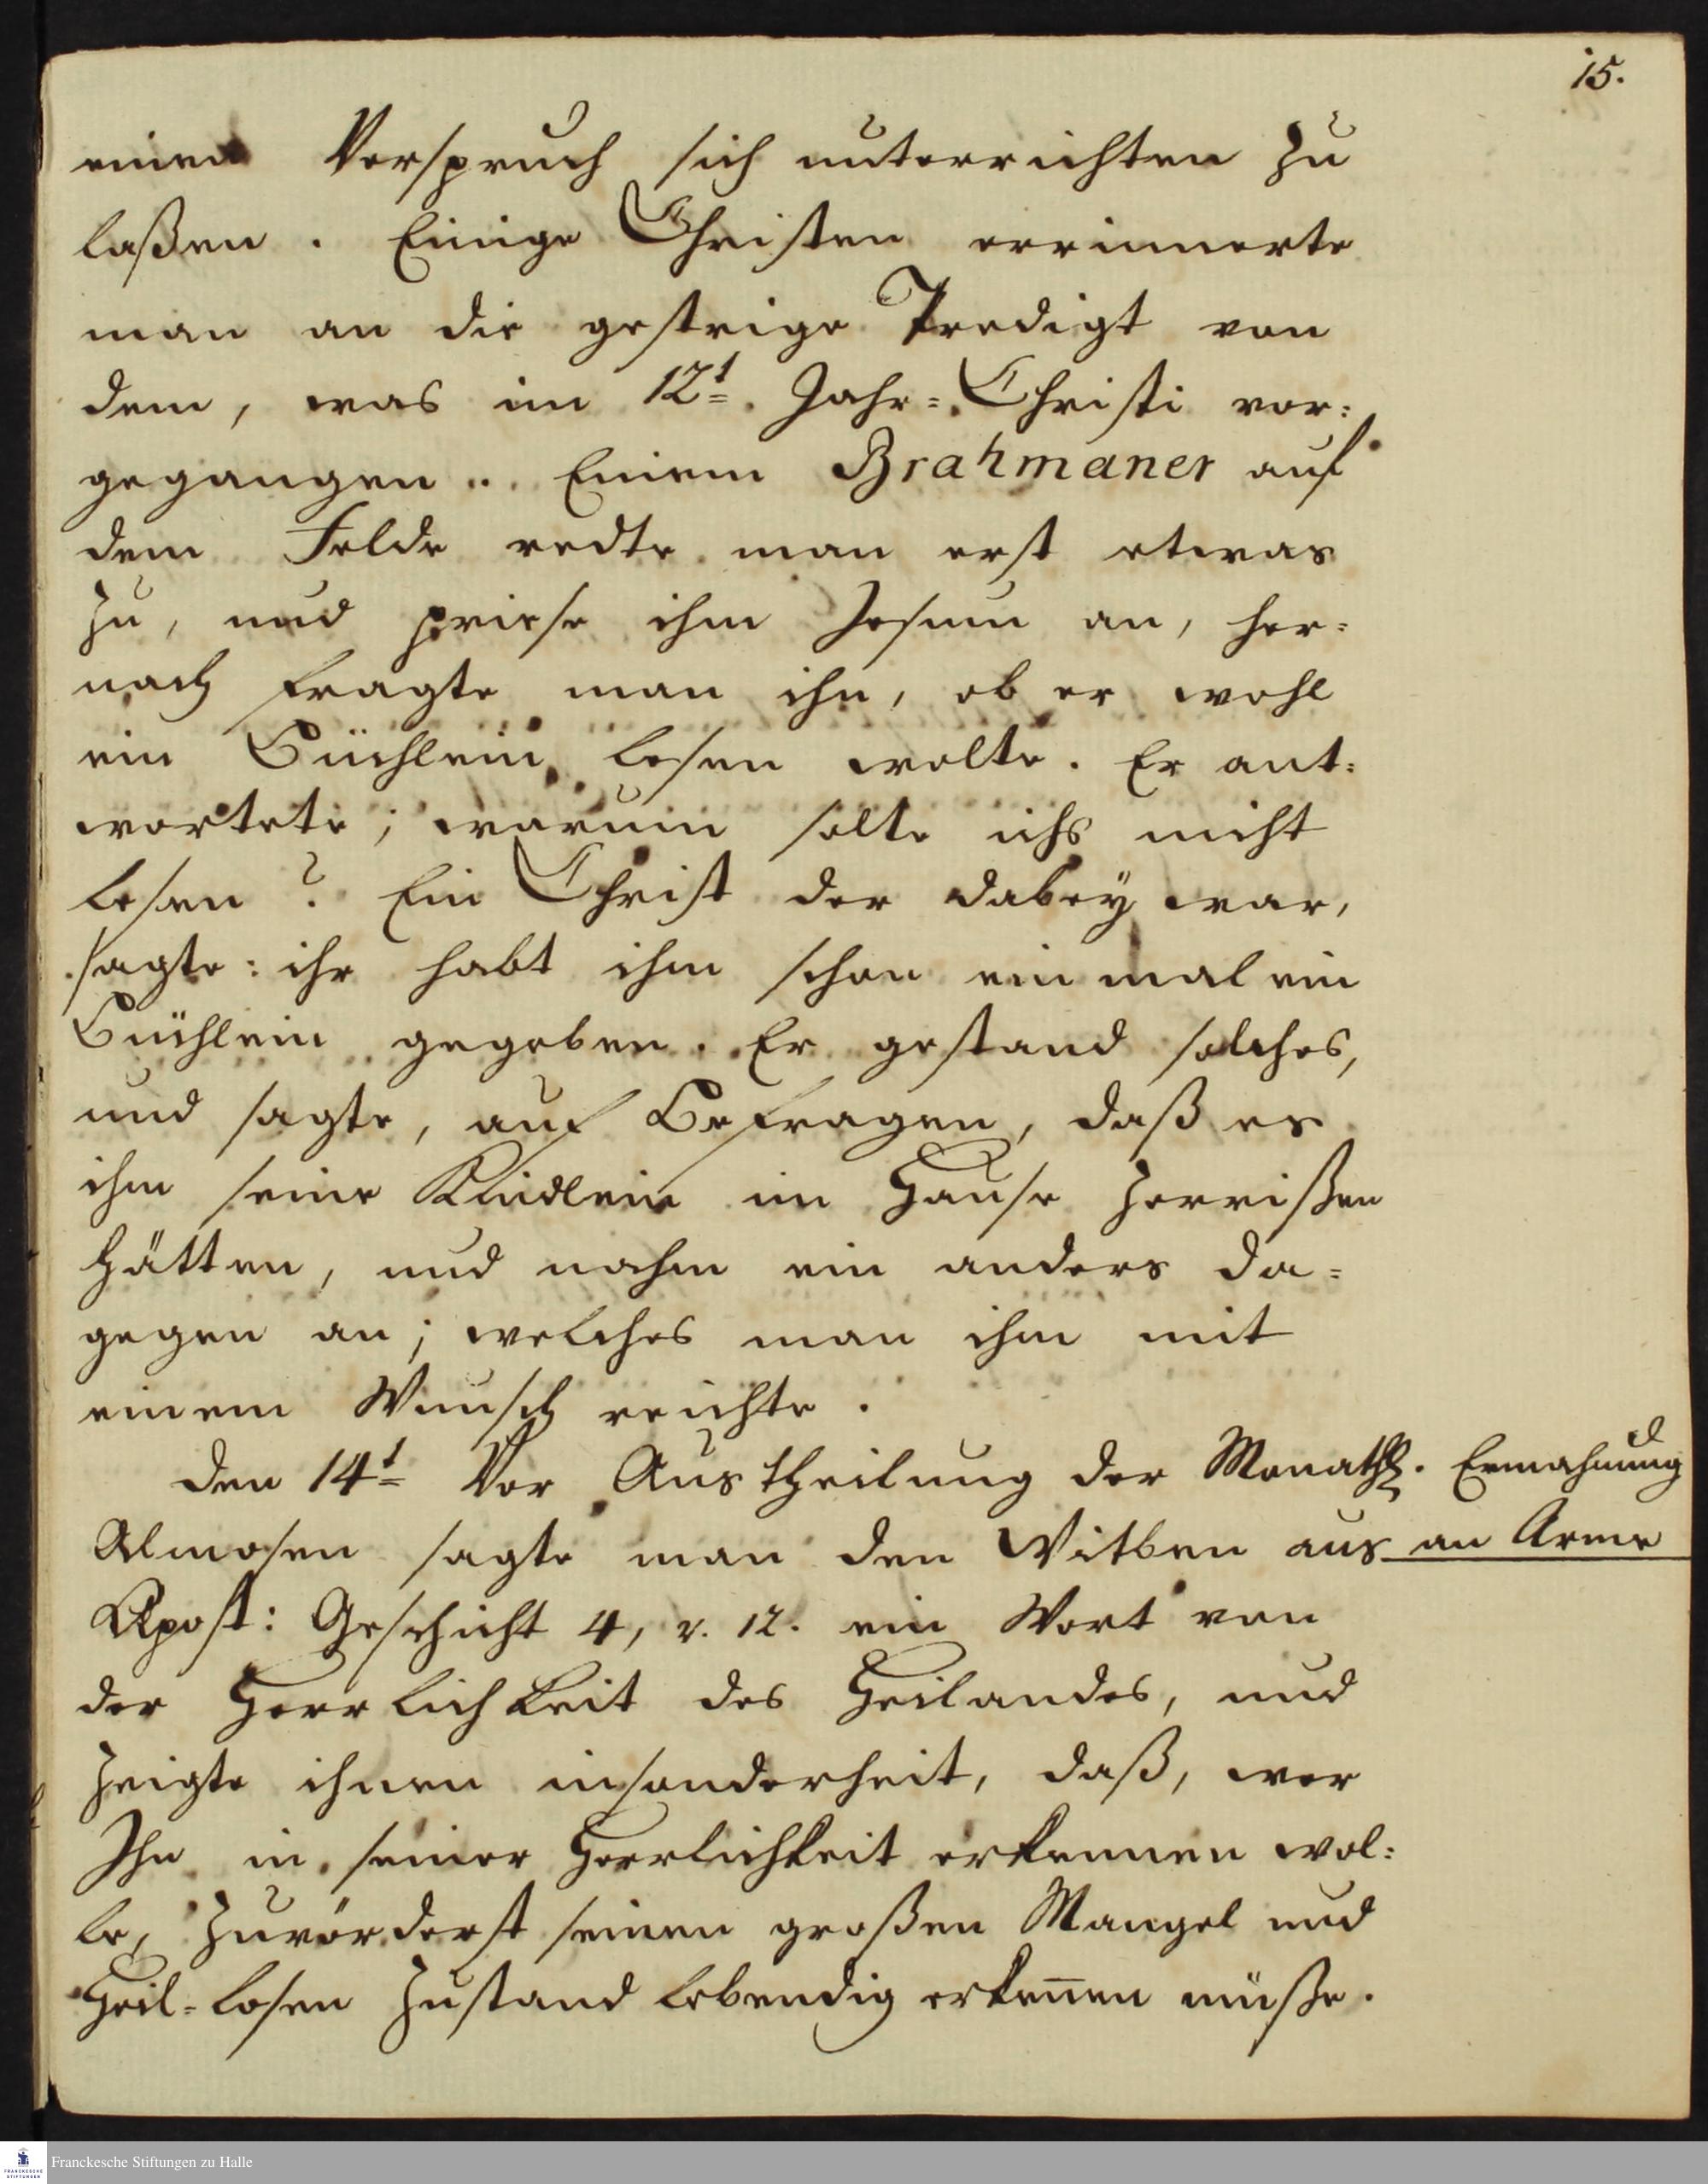 15.
einen Verspruch sich unterrichten zu
laßen. Einige Christen errinnerte
man an die gestrige Predigt von
dem, was im 12t. Jahr-Christi vor=
gegangen. Einem Brahmaner auf
dem Felde redte man erst etwas
zu, und priese ihm Jesum an, her=
nach fragte man ihn, ob er wohl
ein Büchlein lesen wolte. Er ant=
wortete; warum solte ichs nicht
lesen? Ein Christ der dabey war,
sagte: ihr habt ihm schon ein mal ein
Büchlein gegeben. Er gestand solches,
und sagte, auf Befragen, daß es
ihm seine Kindlein im Hause zerrißen
hätten, und nahm ein anders da=
gegen an; welches man ihm mit
einem Wunsch reichte.
den 14t Vor Austheilung der Monathl. Ermahnung
Almosen sagte man den Witben aus an Arme
Apost: Geschicht 4, v. 12. ein Wort von
der Herrlichkeit des Heilandes, und
zeigte ihnen insonderheit, daß, wer
Ihn in seiner Herrlichkeit erkennen wol=
le, zuvörderst seinen großen Mangel und
Heil=losen Zustand lebendig erkennen müße.
Franckesche Stiftungen zu Halle